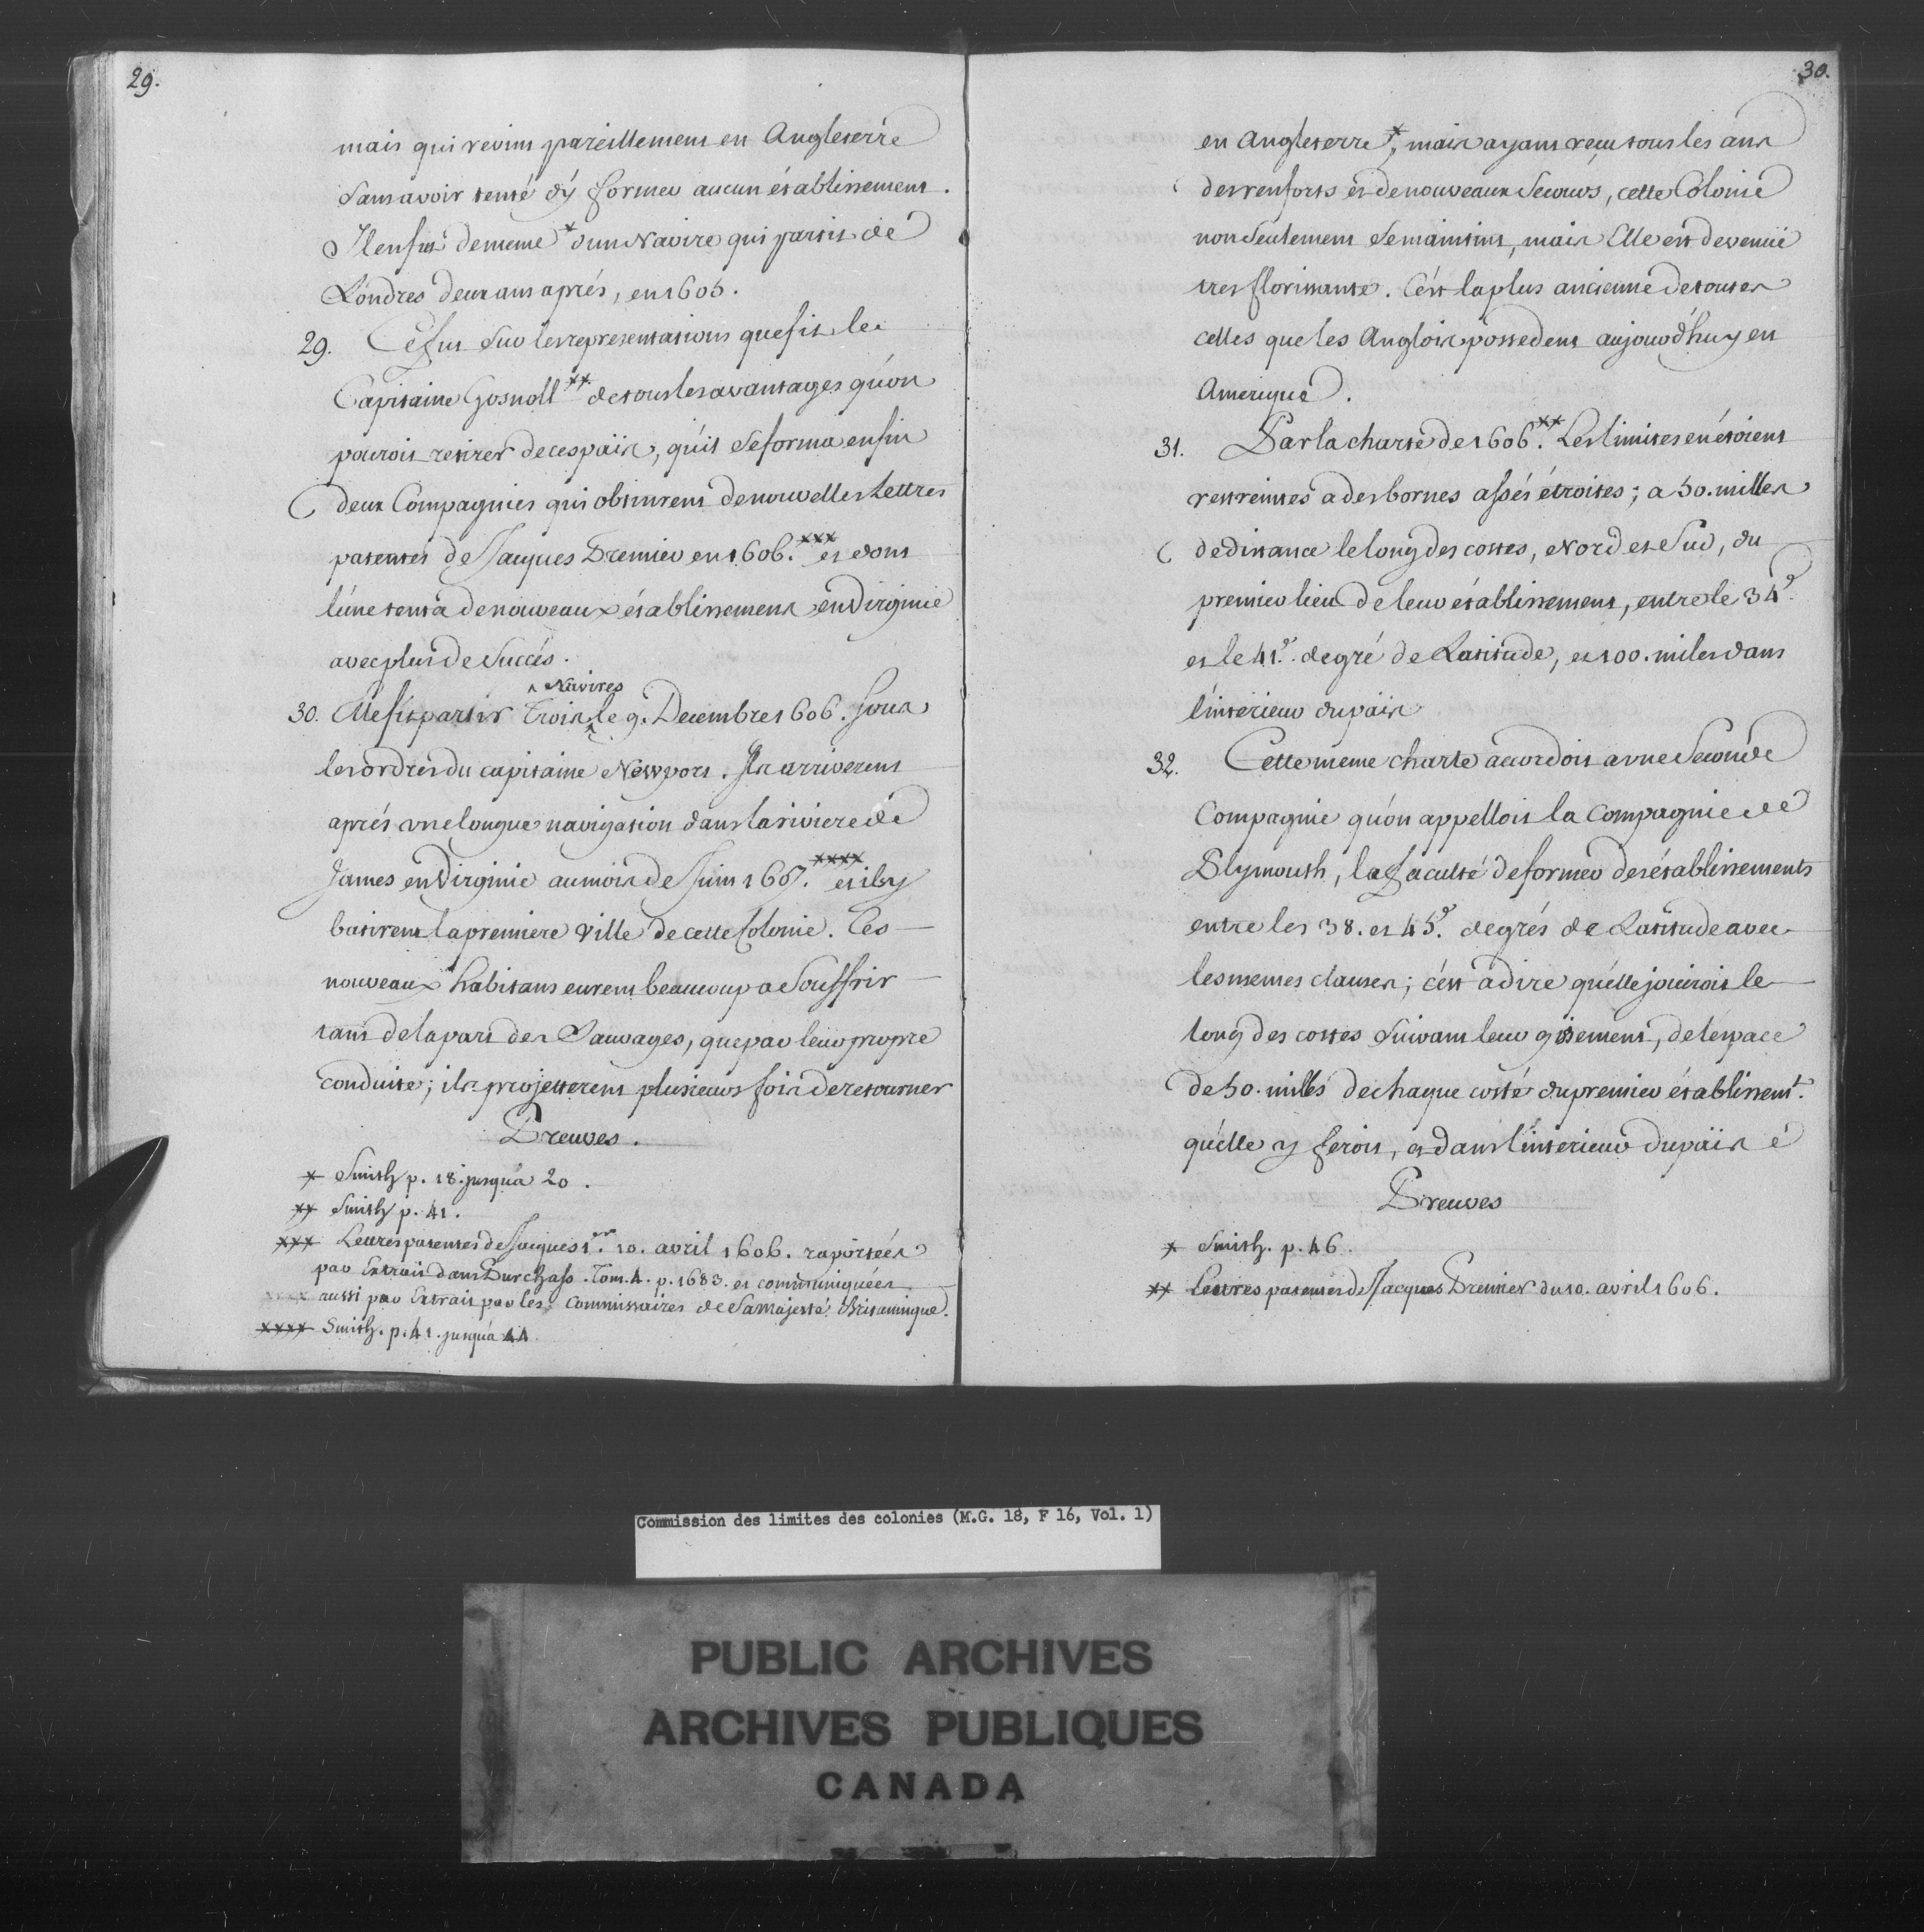 29.
mais qui revint pareillement en Angleterre
sans avoir tenté d'ÿ former aucun établissement.
Il en fut de meme * d'un Navire qui partit de
Londres deux ans aprés, en 1605.
29. Ce fut sur les representations que fit le
Capitaine Gosnoll ** de tous les avantages qu'on
pouroit retirer de ces païs, qu'il se forma enfin
deux Compagnies qui obtinrent de nouvelles Lettres
patentes de Jacques Premier en 1606. *** et dont
l'une tenta de nouveaux établissemens en Virginie
avec plus de Succés.
^ Navires
30. Elle fit partir Trois ^ le 9. Decembre 1606. sous
les ordres du capitaine Newport. Ils arriverent
aprés une longue navigation dans la riviere de
James en Virginie au mois de Juin 1607. **** et ils y
batirent la premiere ville de cette Colonie. Ces
nouveaux habitans eurent beaucoup a Souffrir
tant de la part des Sauvages, que par leur propre
conduite; ils projetterent plusieurs fois de retourner
Preuves.
* Smith p. 18. jusqu'a 20.
** Smith p. 41.
*** Lettres patentes de Jacques 1er. 10. avril 1606. raportées
par Extrait dans Purchass. Tom. 4. p. 1683. et communiquées
aussi par Extrait par les Commissaires de Sa Majesté Britannique.
**** Smith. p. 41. jusqu'a 44
30.
en Angleterre *, mais ayant reçu tous les ans
des renforts et de nouveaux Secours, cette Colonie
non seulement se maintint, mais Elle est devenüe
tres florissante. C'ést la plus ancienne de toutes
celles que les Anglois possedent aujourd'huy en
Amerique.
31. Par la charte de 1606. ** Les limites en étoient
restreintes a des bornes assés étroites; a 50. milles
de distance le long des costes, Nord et Sud, du
premier lieu de leur établissement, entre le 34e.
et le 41e. degré de Latitude, et 100. miles dans
l'interieur du païs
32. Cette meme charte accordoit a une Seconde
Compagnie qu'on appelloit la Compagnie de
Plymouth, la faculté de former des établissements
entre les 38. et 45e. degrés de Latitude avec
les memes clauses; c'ést a dire qu'elle joüiroit le
long des costes suivant leur gisement, de l'espace
de 50. milles de chaque costé du premier établissemt.
qu'elle y feroit, et dans l'interieur du païs é
Preuves
* Smith. p. 46.
** Lettres patentes de Jacques Premier du 10. avril 1606.
Commission des limites des colonies (M.G. 18, F 16, Vol. 1)
PUBLIC ARCHIVES
ARCHIVES PUBLIQUES
CANADA